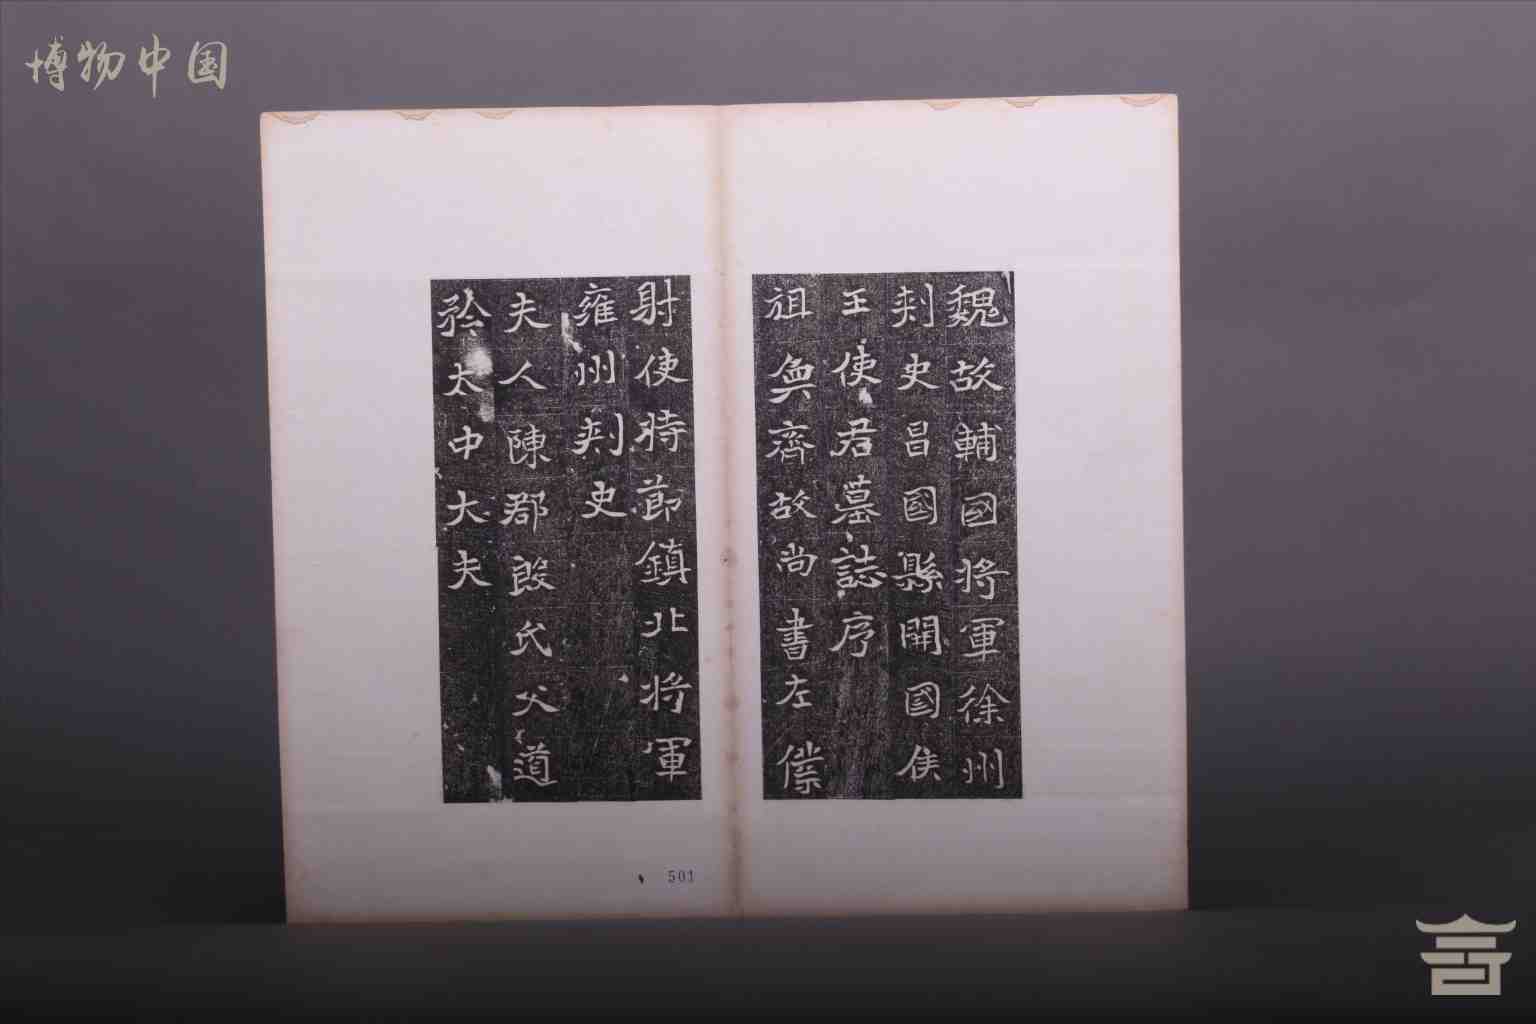 博物中国
魏故輔國將軍徐州
刺史昌國縣開國侯
王使君墓誌序
祖奐齊故尚書左僕
射使持節鎮北將軍
雍州刺史
夫人陳郡殷氏父道
矜太中大夫
501